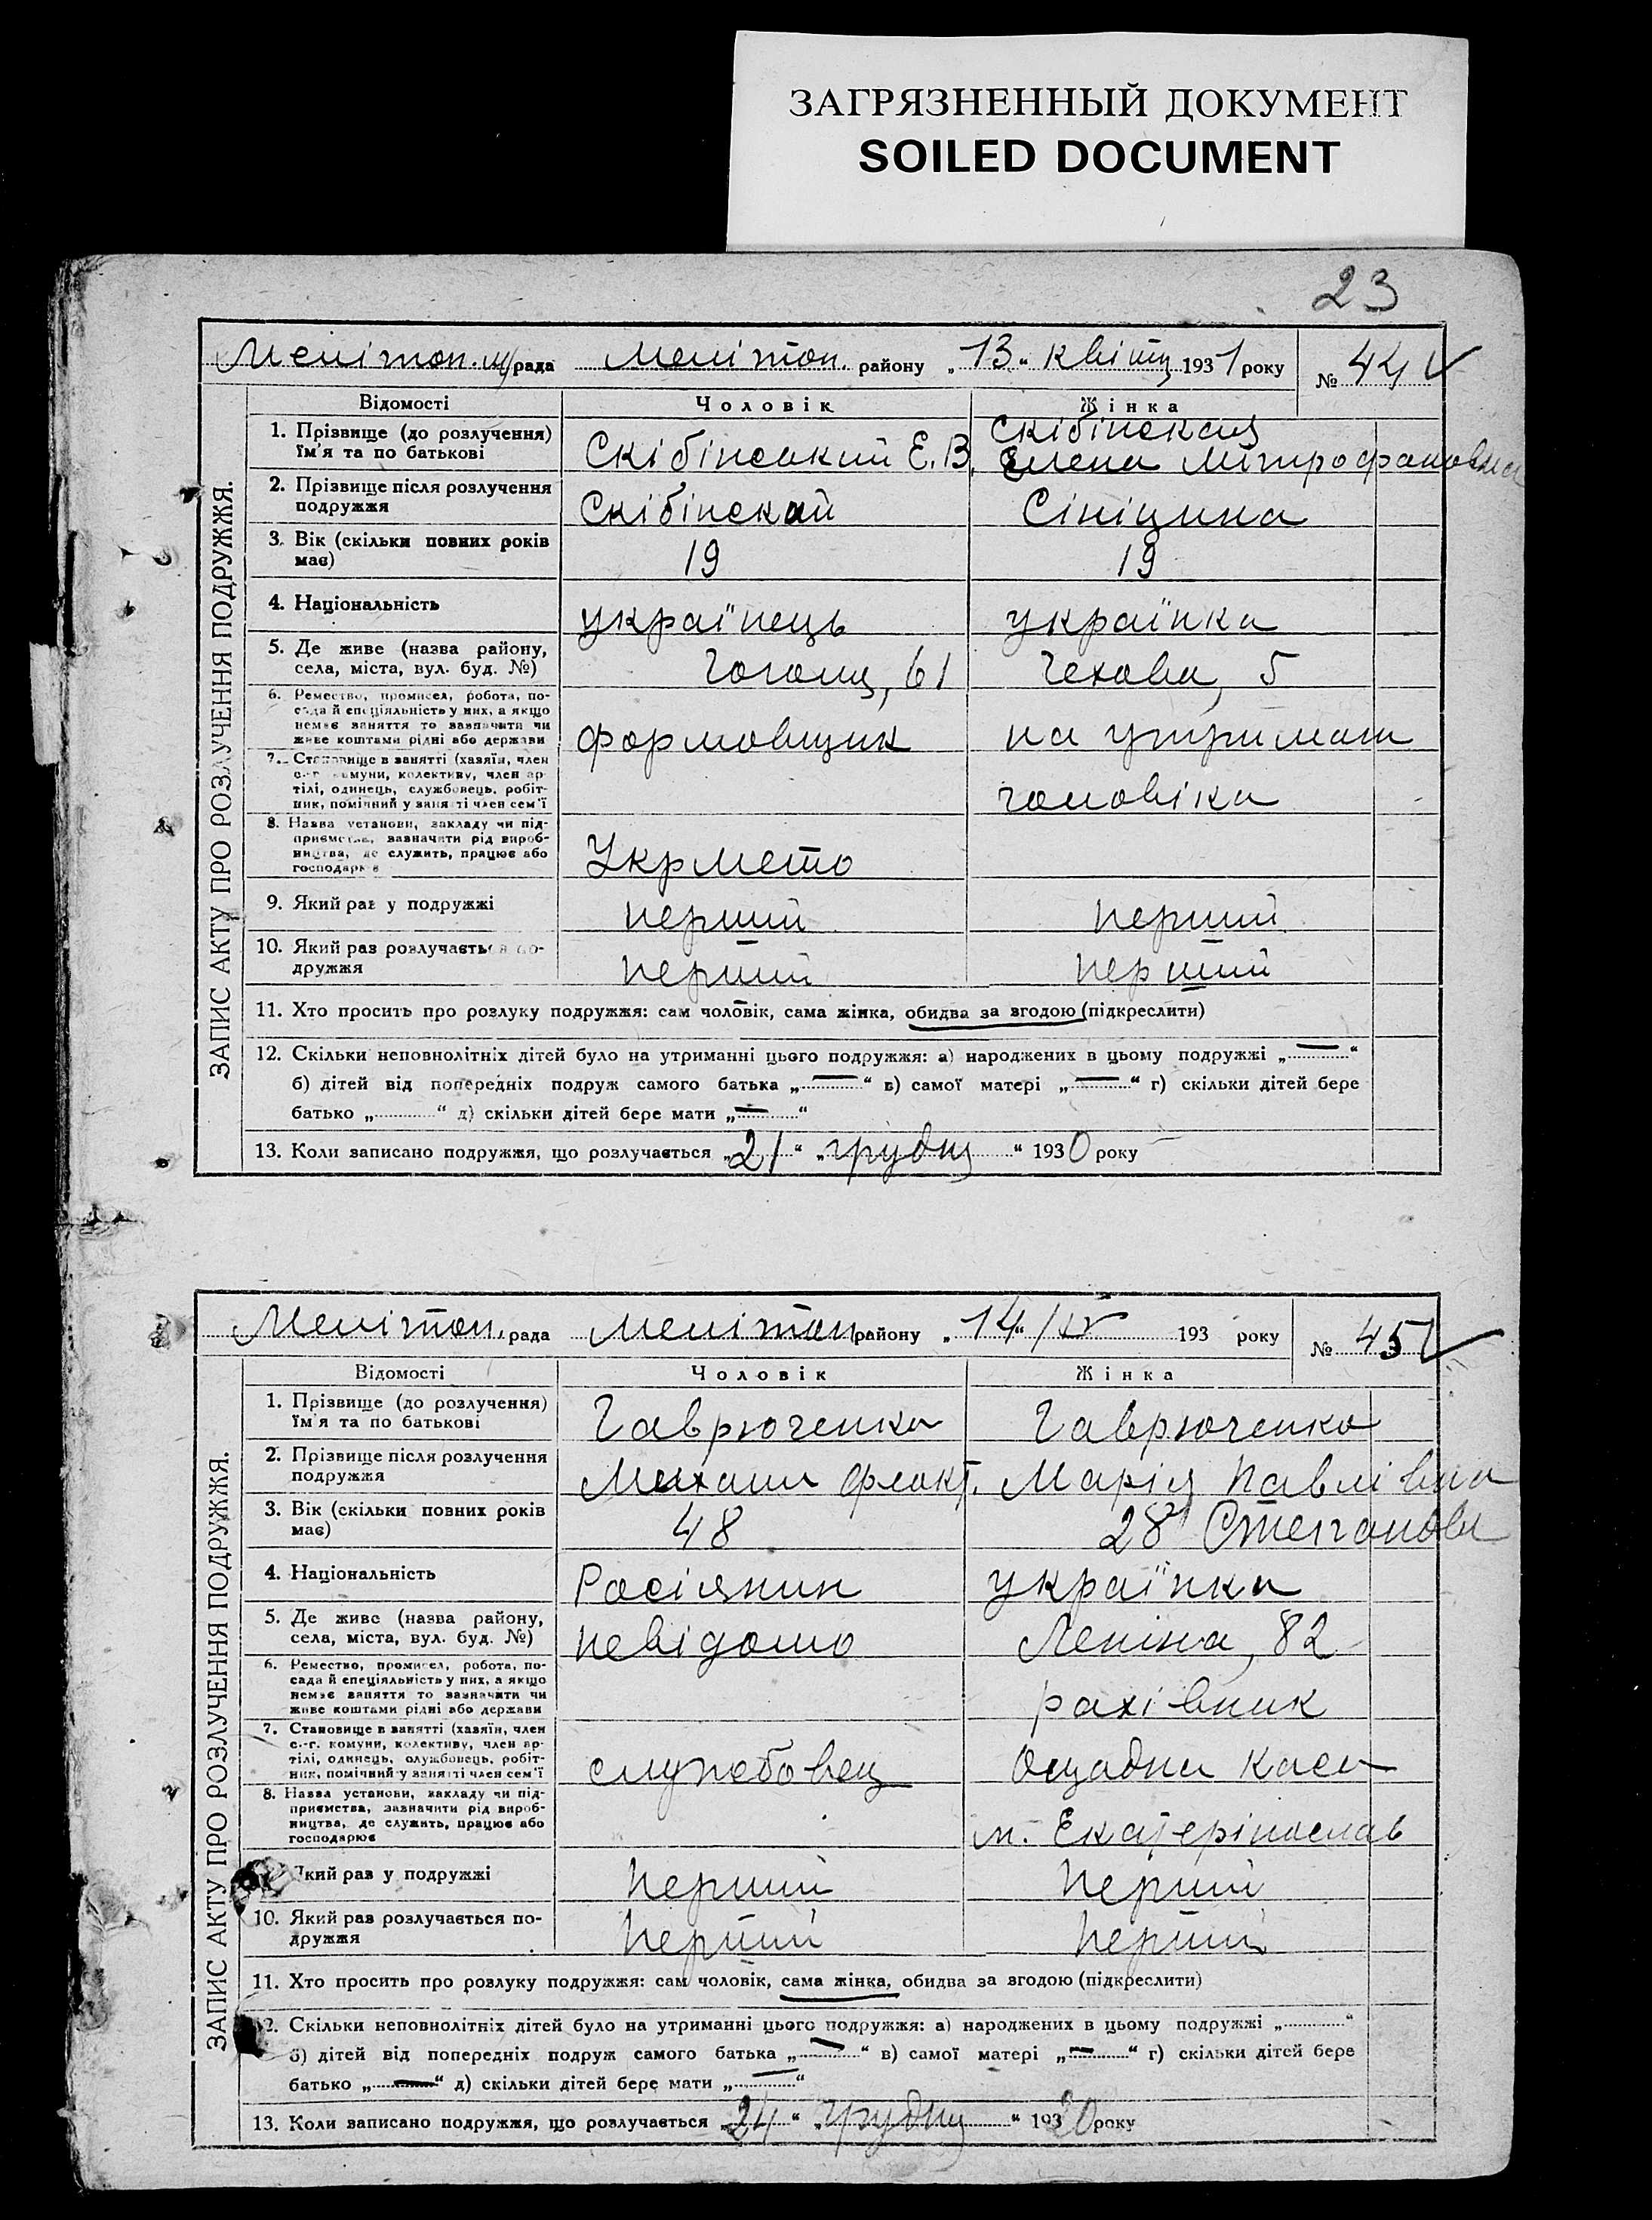 ЗАГРЯЗНЕННЫЙ ДОКУМЕНТ
SOILED DOCUMENT
23
ЗАПИС АКТУ ПРО РОЗЛУЧЕННЯ ПОДРУЖЖЯ.
Мелітоп. м/рада Мелітоп. району „13“ квітн 1931 року № 44
Відомості Чоловік Жінка
1. Прізвище (до розлучення) їм'я та по батькові Скібінський Е. В. Скібінская Елена Мітрофановна
2. Прізвище після розлучення подружжя Скібінский Сініцина
3. Вік (скільки повних років має) 19 19
4. Національність українець українка
5. Де живе (назва району, села, міста, вул. буд. №) Гоголя, 61 Чехова, 5
6. Ремество, промисел, робота, посада й спеціяльність у них, а якщо немає заняття то зазначити чи живе коштами рідні або держави формовщик на утриман
7. Становище в занятті (хазяїн, член с.-г. комуни, колективу, член артілі, одинець, службовець, робітник, помічний у занятті член сем'ї чоловіка
8. Назва установи, закладу чи підприємства, зазначити рід виробництва, де служить, працює або господарює Укрмето
9. Який раз у подружжі перший перший
10. Який раз розлучається подружжя перший перший
11. Хто просить про розлуку подружжя: сам чоловік, сама жінка, обидва за згодою (підкреслити)
12. Скільки неповнолітніх дітей було на утриманні цього подружжя: а) народжених в цьому подружжі „—“
б) дітей від попередніх подруж самого батька „—“ в) самої матері „—“ г) скільки дітей бере
батько „......“ д) скільки дітей бере мати „—“
13. Коли записано подружжя, що розлучається „21“ „грудня“ 1930 року
ЗАПИС АКТУ ПРО РОЗЛУЧЕННЯ ПОДРУЖЖЯ.
Мелітоп. рада Мелітоп району „14“ IV 193 року № 45
Відомості Чоловік Жінка
1. Прізвище (до розлучення) їм'я та по батькові Гаврюченко Гаврюченко
2. Прізвище після розлучення подружжя Михаил Марія Павлівна
3. Вік (скільки повних років має) 48 28 Степанова
4. Національність Росіянин українка
5. Де живе (назва району, села, міста, вул. буд. №) невідомо Леніна, 82
6. Ремество, промисел, робота, посада й спеціяльність у них, а якщо немає заняття то зазначити чи живе коштами рідні або держави рахівник
7. Становище в занятті (хазяїн, член с.-г. комуни, колективу, член артілі, одинець, службовець, робітник, помічний у занятті член сем'ї службовец Ощадна каса
8. Назва установи, закладу чи підприємства, зазначити рід виробництва, де служить, працює або господарює м. Екатерінослав
Який раз у подружжі перший перший
10. Який раз розлучається подружжя перший перший
11. Хто просить про розлуку подружжя: сам чоловік, сама жінка, обидва за згодою (підкреслити)
12. Скільки неповнолітніх дітей було на утриманні цього подружжя: а) народжених в цьому подружжі „......“
б) дітей від попередніх подруж самого батька „—“ в) самої матері „—“ г) скільки дітей бере
батько „—“ д) скільки дітей бере мати „—“
13. Коли записано подружжя, що розлучається „24“ „грудня“ 19320 року